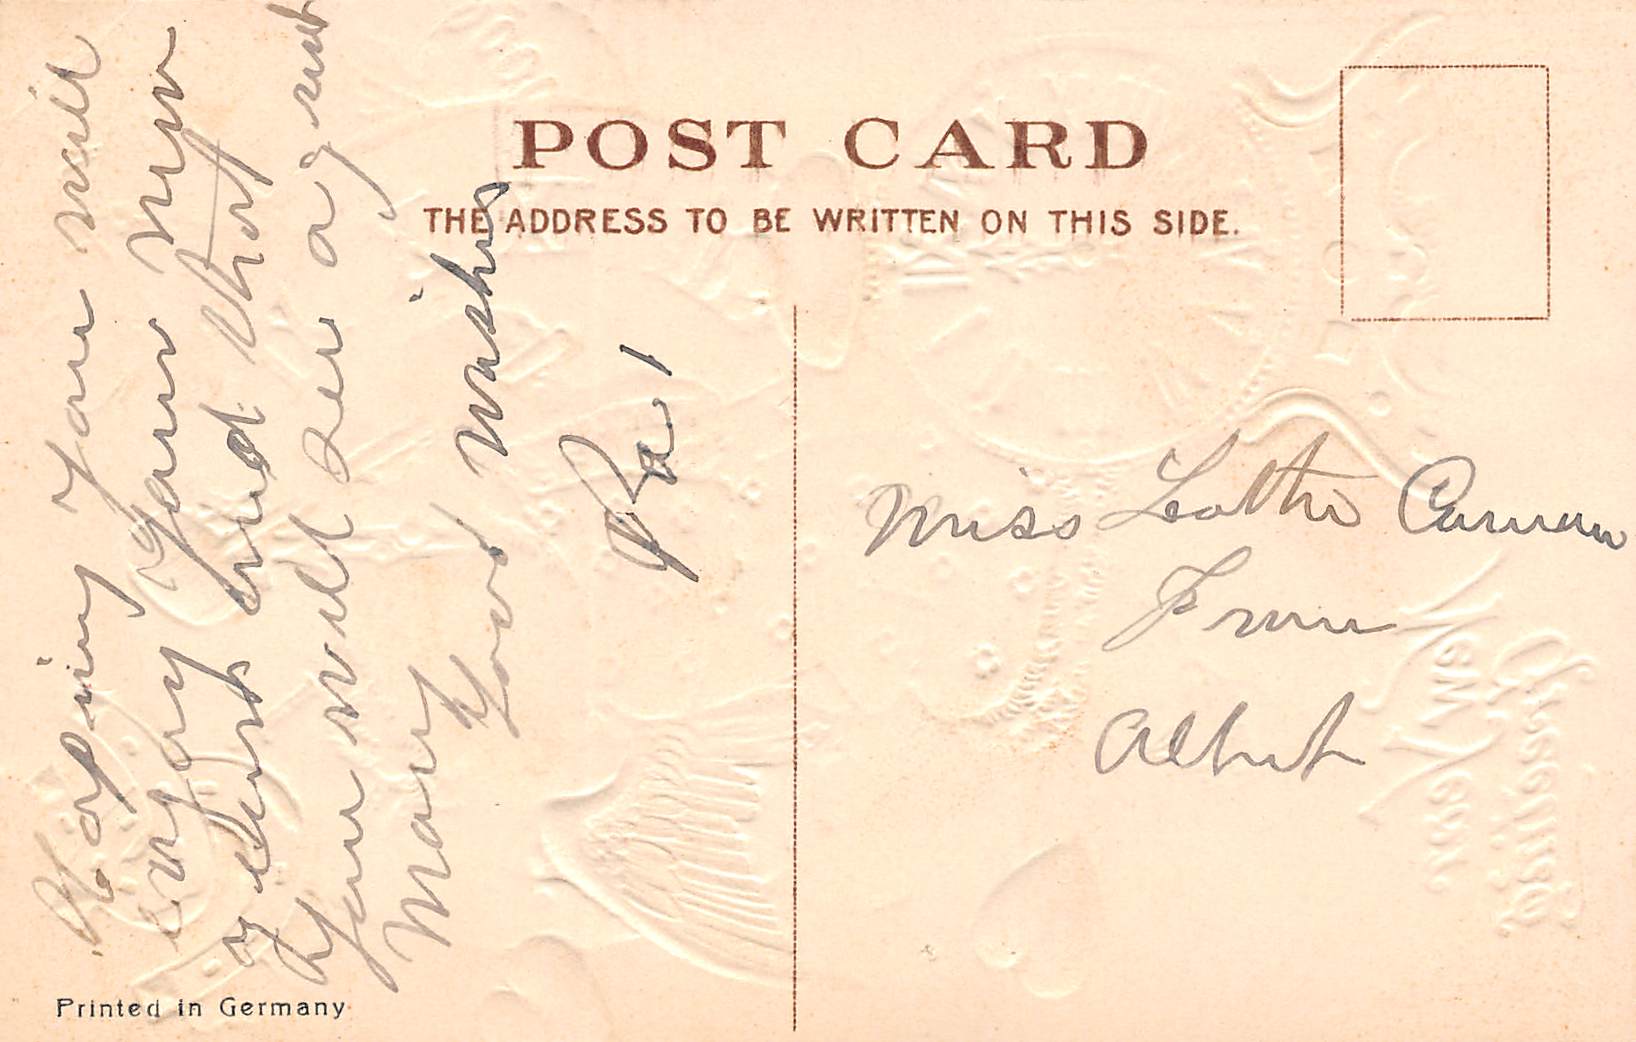 POST CARD
THE ADDRESS TO BE WRITTEN ON THIS SIDE.
Hoping you will
enjoy your New
years and that
you will see a gint
many good wishes
Pa 1
Miss Leatha Carman
From
Albert
Printed in Germany
Greetings
New Year